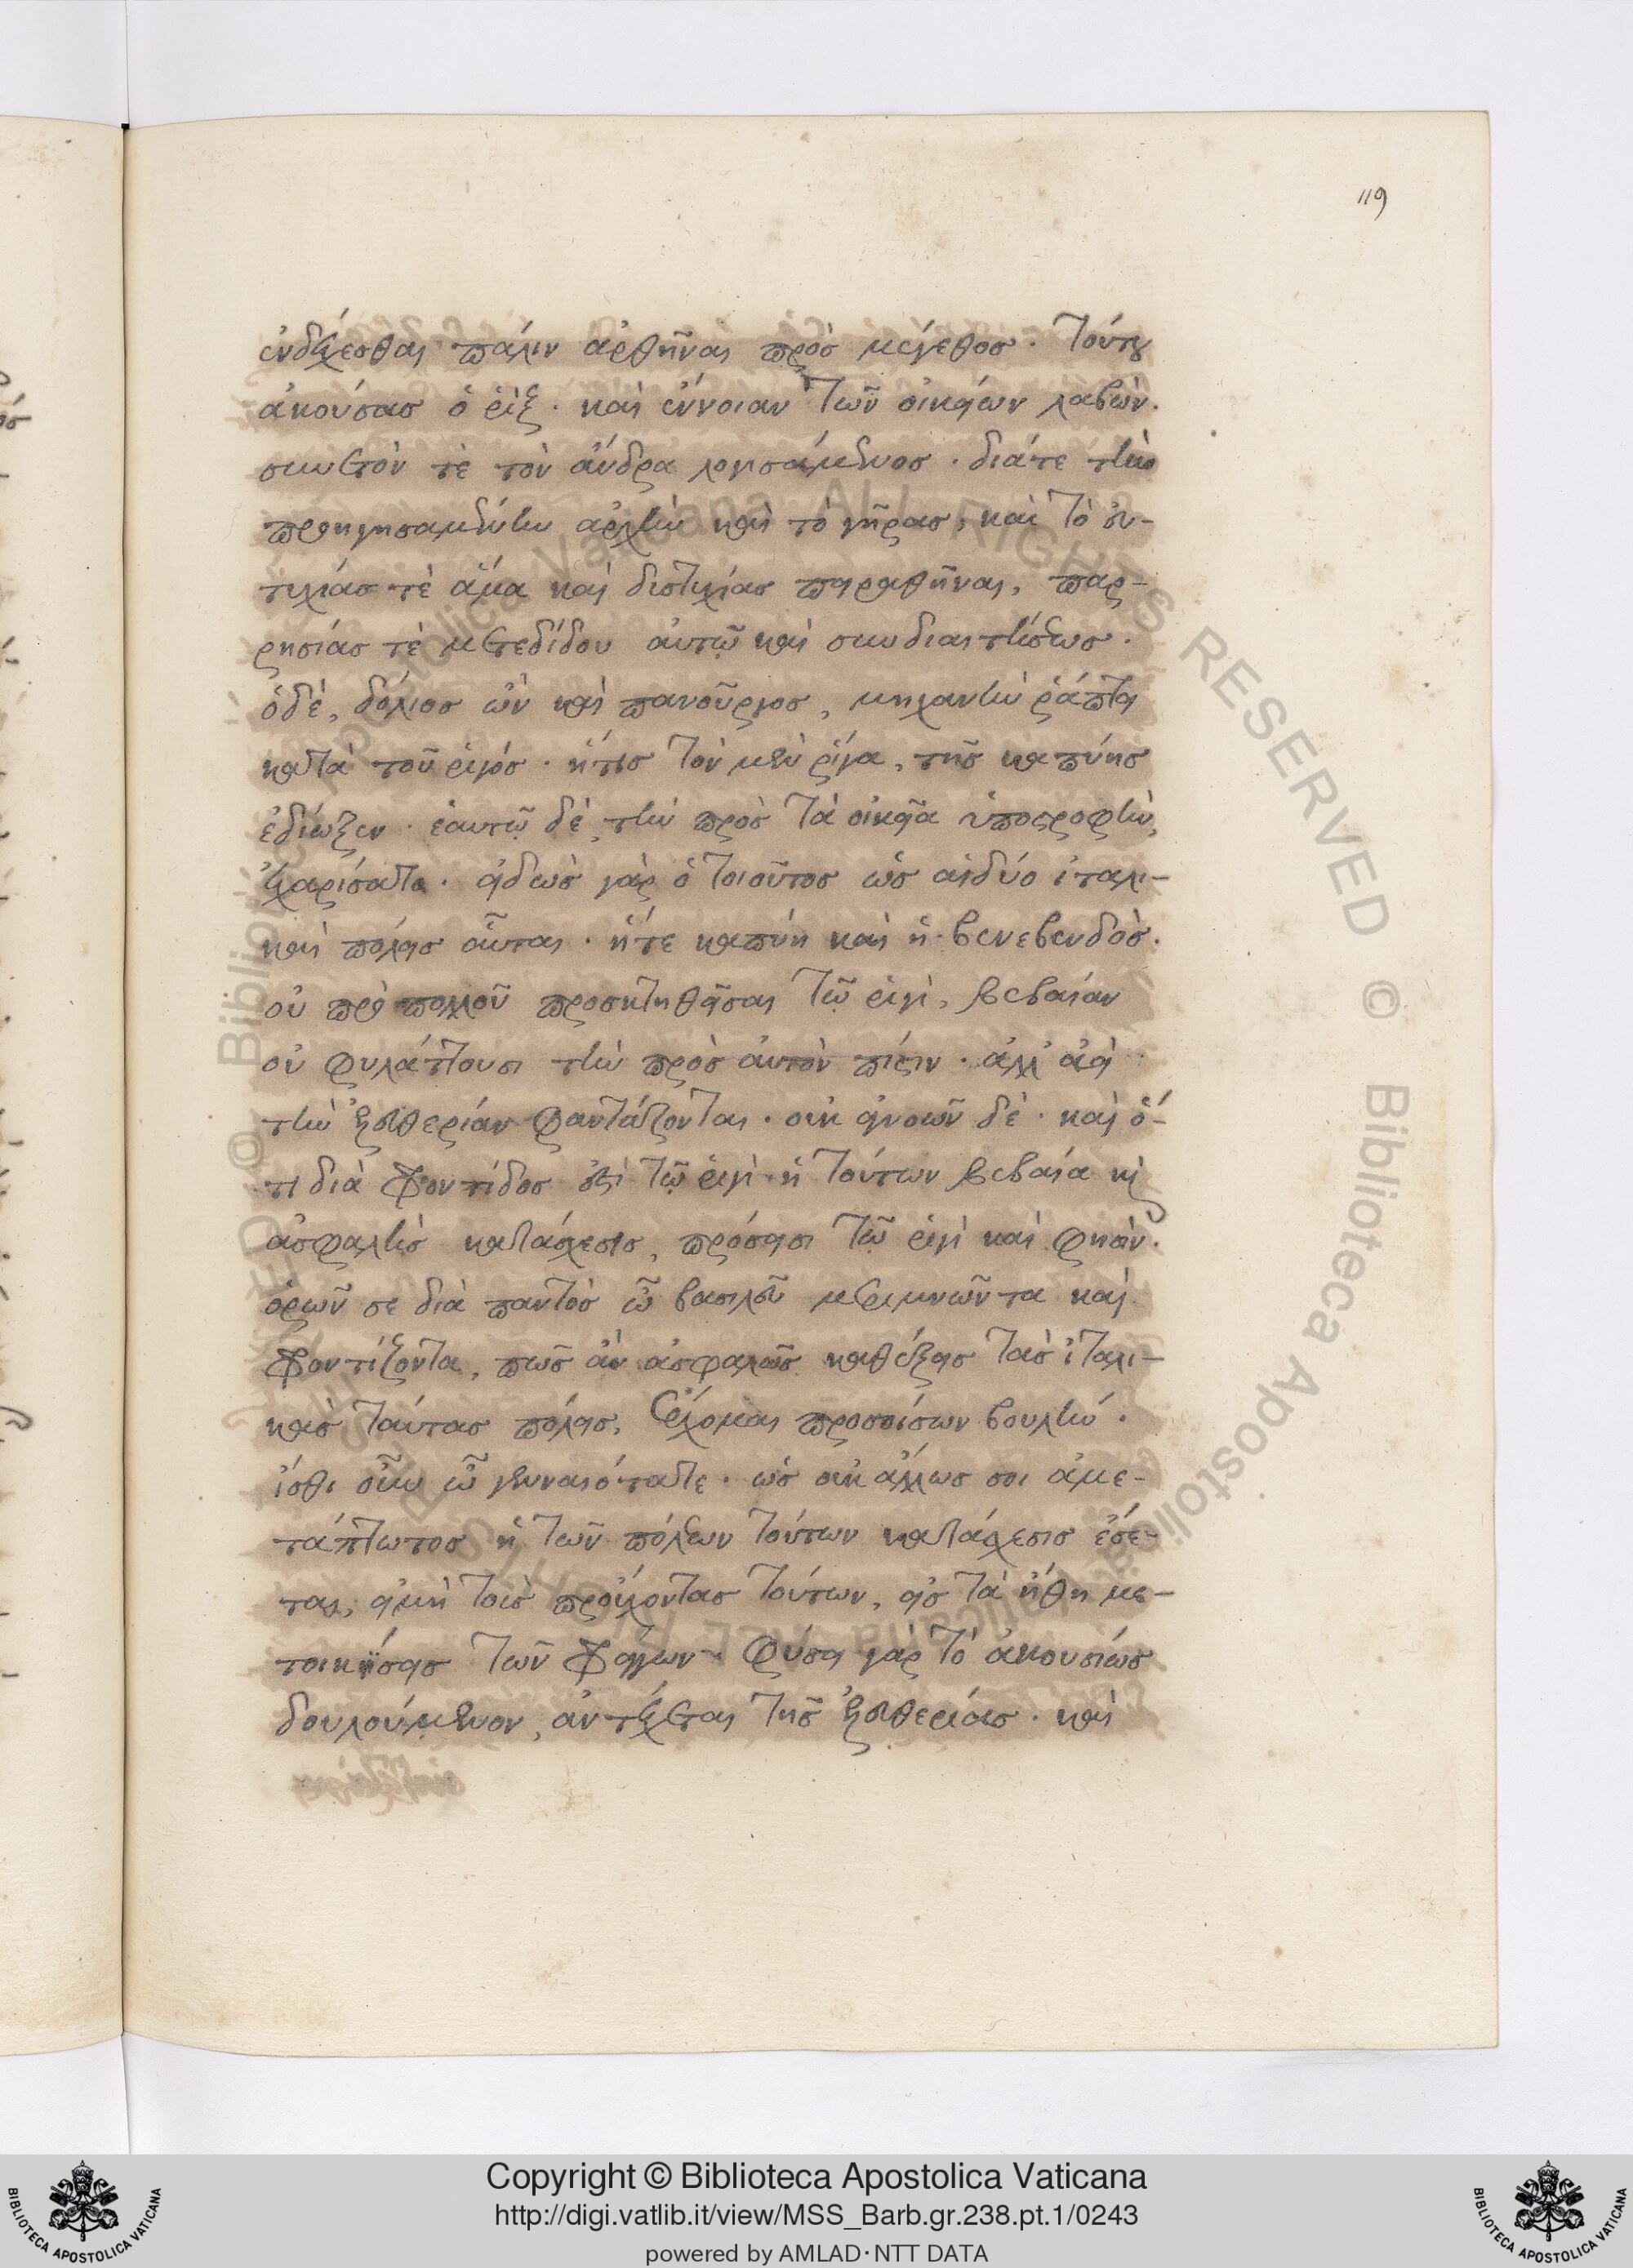 119
ἐνδέχεσθαι πάλιν ἀρθῆναι πρὸς μέγεθος. τούτου
ἀκούσας ὁ ῥὶξ. καὶ ἔννοιαν τῶν οἰκείων λαβὼν.
συνετόν τὲ τὸν ἄνδρα λογισάμενος. διάτε τὴν
προηγησαμένην ἀρχὴν καὶ τὸ γῆρας, καὶ τὸ εὐ-
τυχίας τὲ ἅμα καὶ δυστυχίας πειραθῆναι, παρ-
ρησίας τὲ μετεδίδου αὐτῷ καὶ συνδιαιτήσεως.
ὁδὲ, δόλιος ὢν καὶ πανοῦργος, μηχανὴν ῥάπτει
κατὰ τοῦ ῥιγός. ἥτις τὸν μὲν ῥίγα, τῆς καπύης
ἐδίωξεν. ἑαυτῷ δὲ, τὴν πρὸς τὰ οἰκεῖα ὑποστροφὴν,
ἐχαρίσατο. εἰδὼς γὰρ ὁ τοιοῦτος ὡς αἱδύο ἰταλι-
καὶ πόλεις αὗται. ἥτε καπύη καὶ ἡ βενεβενδὸς.
οὐ πρὸ πολλοῦ προσκτηθεῖσαι τῷ ῥιγὶ, βεβαίαν
οὐ φυλάττουσι τὴν πρὸς αὐτὸν πίστιν. ἀλλ' ἀεὶ
τὴν ἐλευθερίαν φαντάζονται. οὐκ ἀγνοῶν δὲ. καὶ ὅ-
τι διὰ φροντίδος ἐστὶ τῷ ῥιγὶ ἡ τούτων βεβαία κὶ
ἀσφαλὴς κατάσχεσις, πρόσεισι τῷ ῥιγὶ καὶ φησὶν.
ὁρῶν σε διὰ παντὸς ὦ βασιλεῦ μεριμνῶντα καὶ
φροντίζοντα, πῶς ἂν ἀσφαλῶς καθέξεις τὰς ἰταλι-
κὰς ταύτας πόλεις, ἔρχομαι προσοίσων βουλήν.
ἴσθι οὖν ὦ γενναιότατε. ὡς οὐκ ἄλλως σοι ἀμε-
τάπτωτος ἡ τῶν πόλεων τούτων κατάσχεσις ἔσε-
ται, εἰμὴ τοὺς προέχοντας τούτων, εἰς τὰ ἤθη με-
τοικήσεις τῶν φράγγων. φύσει γὰρ τὸ ἀκουσίως
δουλούμενον, ἀντέχεται τῆς ἐλευθερίας. καὶ
Copyright © Biblioteca Apostolica Vaticana
http://digi.vatlib.it/view/MSS_Barb.gr.238.pt.1/0243
powered by AMLAD·NTT DATA
BIBLIOTECA APOSTOLICA VATICANA
BIBLIOTECA APOSTOLICA VATICANA